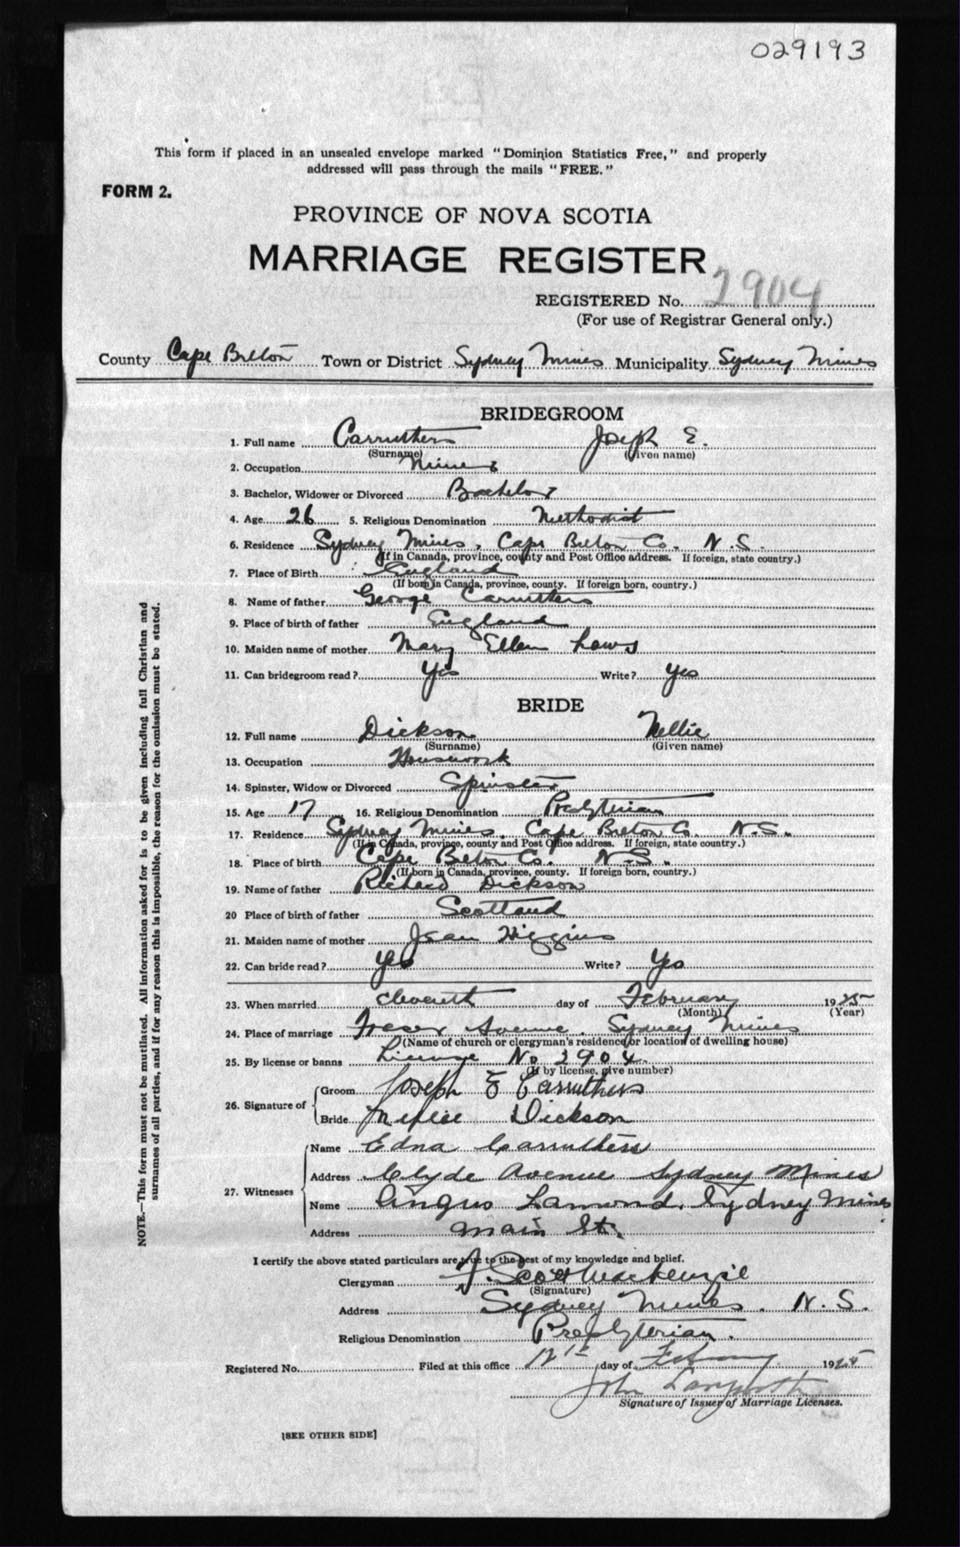 029193
This form if placed in an unsealed envelope marked "Dominion Statistics Free," and properly
addressed will pass through the mails "FREE."
FORM 2.
PROVINCE OF NOVA SCOTIA
MARRIAGE REGISTER
REGISTERED No. 2904
(For use of Registrar General only.)
County Cape Breton Town or District Sydney Mines Municipality Sydney Mines
BRIDEGROOM
1. Full name Carruthers Joseph E.
(Surname) (Given name)
2. Occupation Miner
3. Bachelor, Widower or Divorced Bachelor
4. Age 26 5. Religious Denomination Methodist
6. Residence Sydney Mines, Cape Breton Co. N.S.
(If in Canada, province, county and Post Office address. If foreign, state country.)
7. Place of Birth England
(If born in Canada, province, county. If foreign born, country.)
8. Name of father George Carruthers
9. Place of birth of father England
10. Maiden name of mother Mary Ellen Laws
11. Can bridegroom read? Yes Write? Yes
BRIDE
12. Full name Dickson Nellie
(Surname) (Given name)
13. Occupation Housework
14. Spinster, Widow or Divorced Spinster
15. Age 17 16. Religious Denomination Presbyterian
17. Residence Sydney Mines, Cape Breton Co. N.S.
(If in Canada, province, county and Post Office address. If foreign, state country.)
18. Place of birth Cape Breton Co. N.S.
(If born in Canada, province, county. If foreign born, country.)
19. Name of father Richard Dickson
20 Place of birth of father Scotland
21. Maiden name of mother Jean Higgins
22. Can bride read? Yes Write? Yes
23. When married eleventh day of February 1925
(Month) (Year)
24. Place of marriage Fraser Avenue. Sydney Mines
(Name of church or clergyman's residence or location of dwelling house)
25. By license or banns License No 2904
(If by license, give number)
26. Signature of Groom Joseph E Carruthers
Bride Nellie Dickson
27. Witnesses Name Edna Carruthers
Address Clyde Avenue Sydney Mines
Name Angus Lamond. Sydney Mines
Address Main St.
I certify the above stated particulars are true to the best of my knowledge and belief.
Clergyman J. Scott Mackenzie
(Signature)
Address Sydney Mines. N.S.
Religious Denomination Presbyterian.
Registered No. Filed at this office 12th day of February 1925
John
Signature of Issuer of Marriage Licenses.
[SEE OTHER SIDE]
NOTE.—This form must not be mutilated. All information asked for is to be given including full Christian and
surnames of all parties, and if for any reason this is impossible, the reason for the omission must be stated.